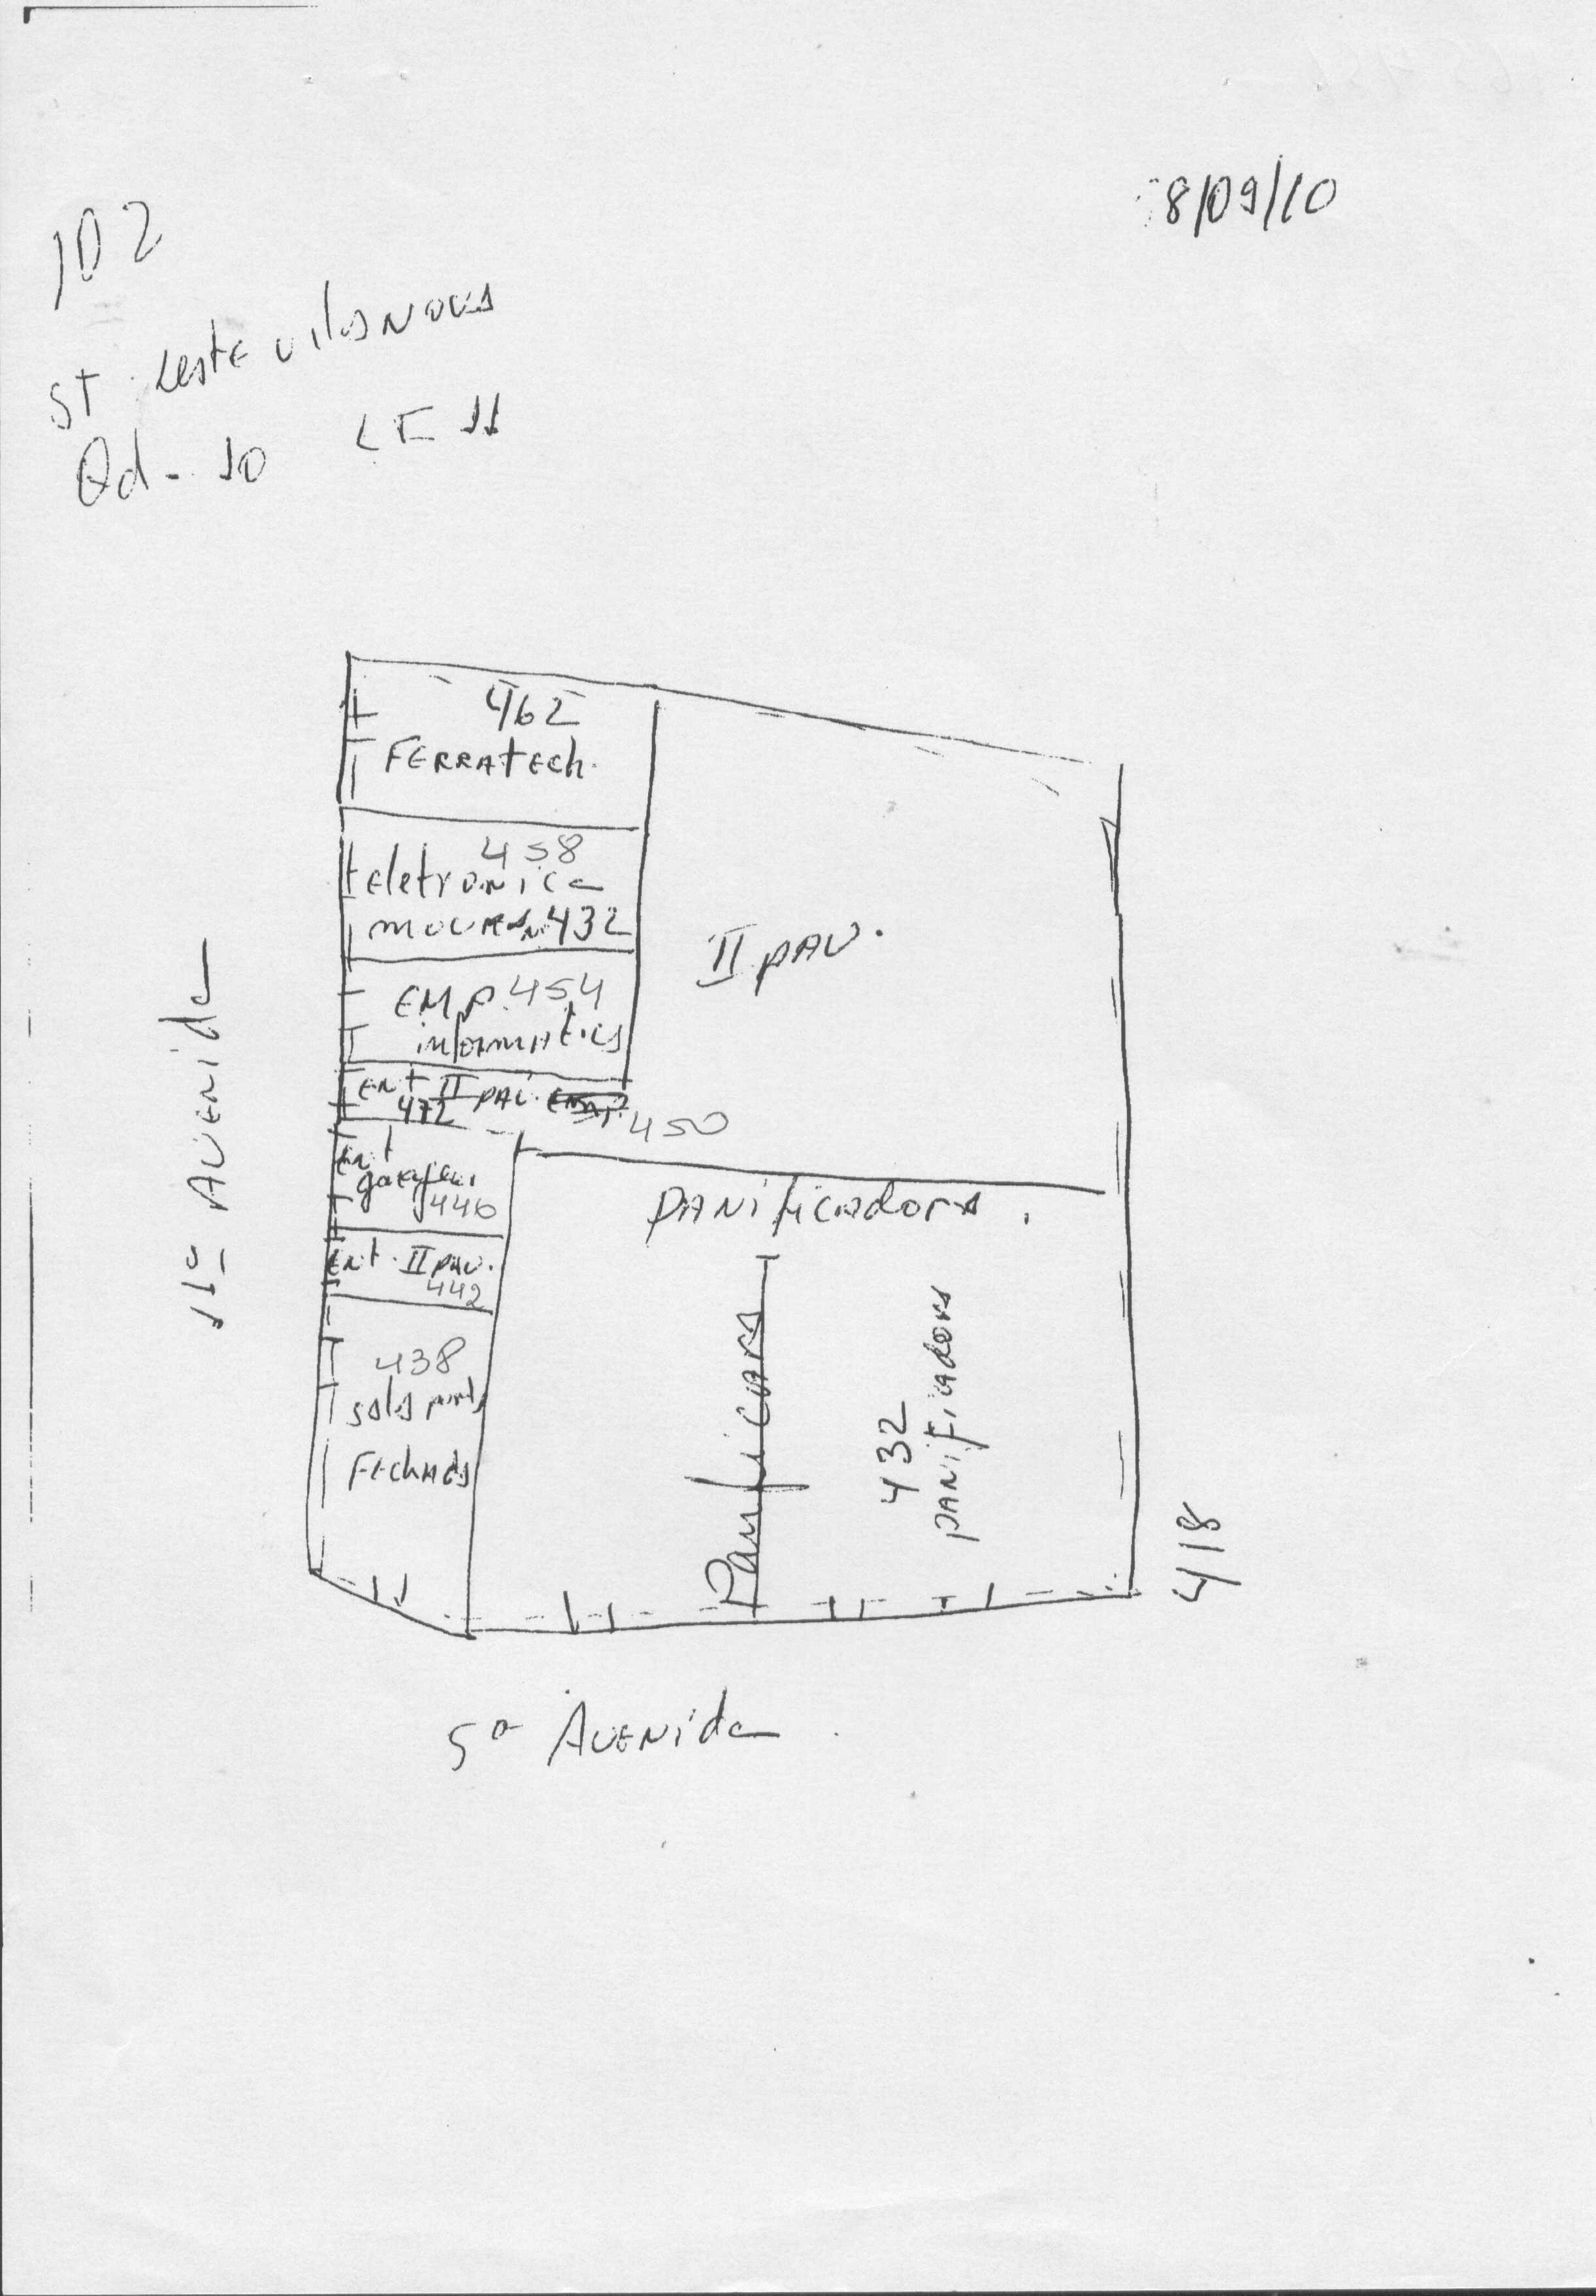 8/09/10
102
ST. Leste vila Nova
Qd - 10 LT 11
462
FERRATECh.
458
Eletronica
moura n. 432
EMP. 454
informatica
Ent II pav.
472
450
II pav.
Ent
garagem
446
Ent. II pav.
442
438
sala porta
Fechada
Panificadora.
432
panificadora
418
11ª Avenida
5ª Avenida